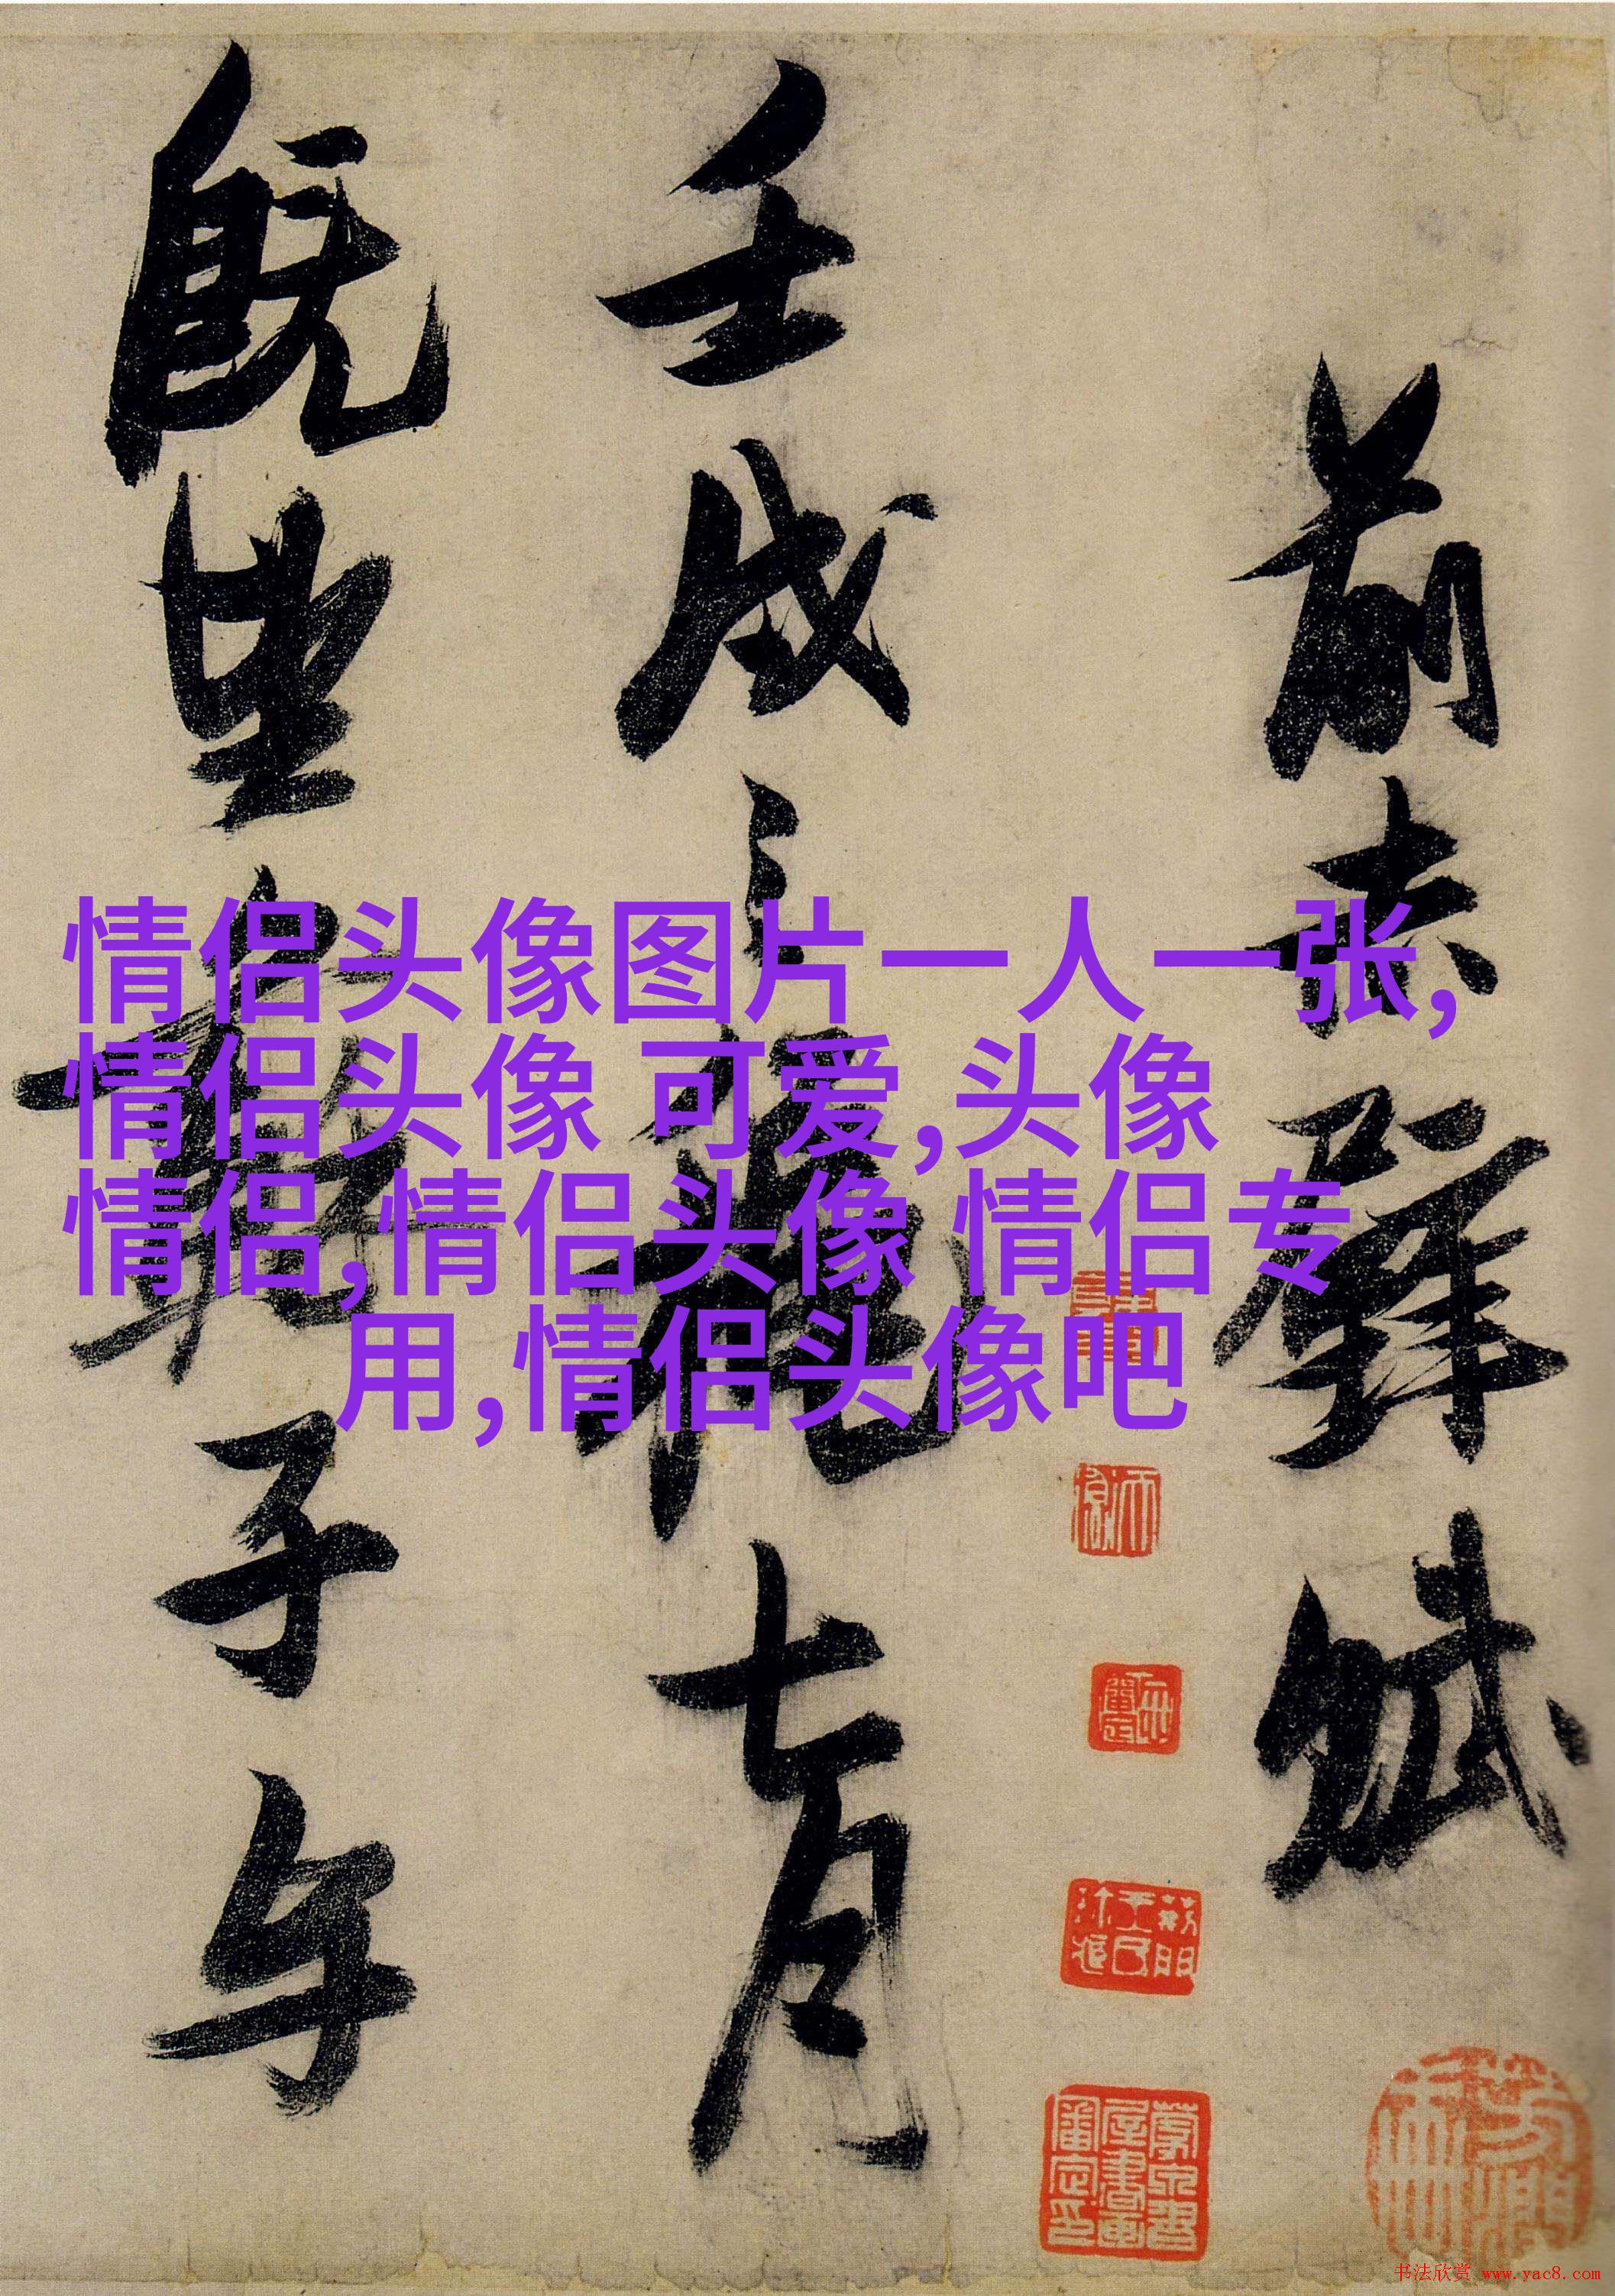 前赤壁賦
壬戌之秋七月
既望蘇子与
情侣头像图片一人一张,
情侣头像 可爱,头像
情侣,情侣头像 情侣专
用,情侣头像吧
书法欣赏 www.yac8.com